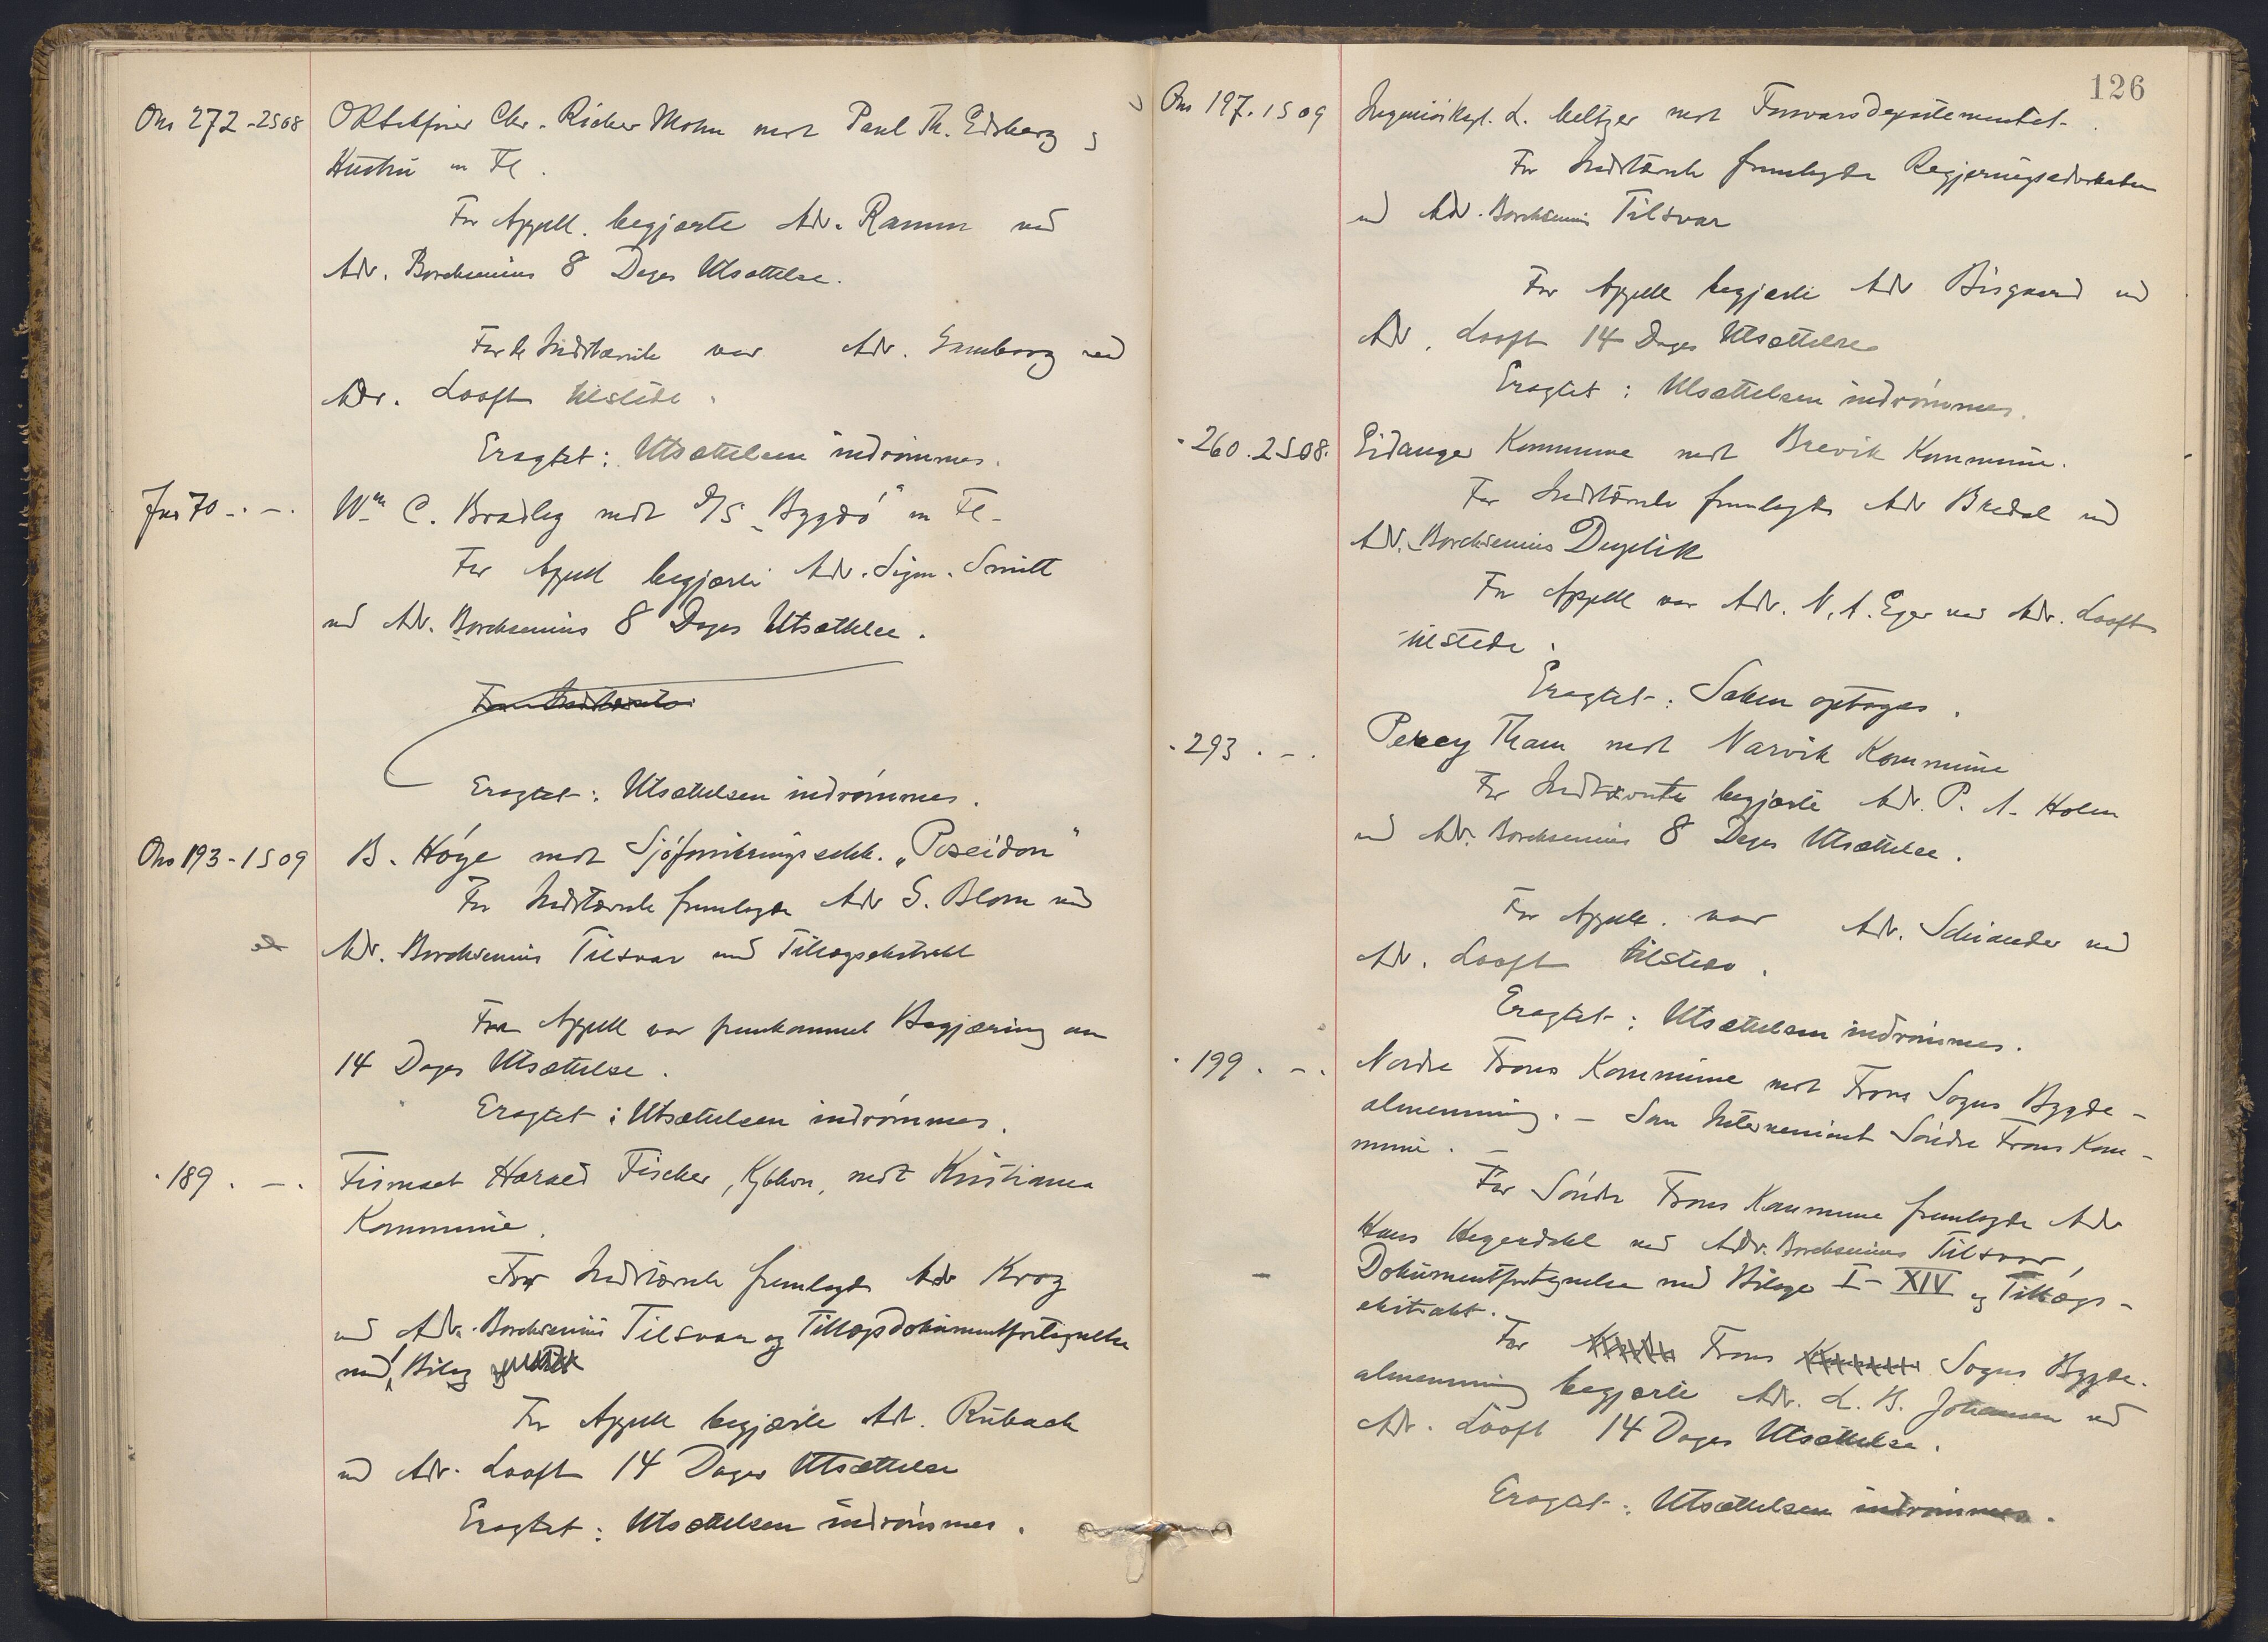 Ons 272-2S08 ORSakfører Chr. Ricker Mohn mot Paul Th. Edsberg og
Hustru m Fl.
For Appell. begjærte Adv. Ramm ved
Adv. Borchsenius 8 Dages Utsættelse.
For de Indstævnte var Adv. ved
Adv. Looft tilstede.
Eragtet: Utsættelsen indrømmes.
Jns 70 - . - . Wm C. Bradley mot D/S „Bygdø" m Fl -
For Appell begjærte Adv. Sigm. Smitt
ved Adv. Borchsenius 8 Dages Utsættelse.
For Indstævnte
Eragtet: Utsættelsen indrømmes.
Ons 193-1S09 B. Høye mot Sjøforsikringsselsk. „Poseidon"
For Indstævnte fremlagde Adv S. Blom ved
Adv. Borchsenius Tilsvar med Tillægsekstrakt
For Appell var fremkommet Begjæring om
14 Dages Utsættelse.
Eragtet: Utsættelsen indrømmes.
" 189 . - . Firmaet Harald Fischer, Kjbhvn, mot Kristiania
Kommune.
For Indstævnte fremlagde Adv Krog
ved Adv. Borchsenius Tilsvar og Tillægsdokumentfortegnelse
med Bilag
For Appell begjærte Adv. Rubach
ved Adv. Looft 14 Dages Utsættelse
Eragtet: Utsættelsen indrømmes.
126
Ons 197. 1S09 Ingeniørkapt. L. Meltzer mot Forsvarsdepartementet.
For Indstævnte fremlagde Regjeringsadvokaten
ved Adv. Borchsenius Tilsvar
For Appell begjærte Adv Bisgaard ved
Adv. Looft 14 Dages Utsættelse
Eragtet: Utsættelsen indrømmes.
" 260. 2S08. Eidanger Kommune mot Brevik Kommune.
For Indstævnte fremlagde Adv Bredal ved
Adv. Borchsenius Duplik
For Appell var Adv. N. A. Eger ved Adv. Looft
tilstede.
Eragtet: Saken optages.
" 293 . - . Percy Tham mot Narvik Kommune
For Indstævnte begjærte Adv. P. A. Holm
ved Adv. Borchsenius 8 Dages Utsættelse.
For Appell. var Adv. Schiander ved
Adv. Looft tilstede.
Eragtet: Utsættelsen indrømmes.
" 199 . - . Nordre Frons Kommune mot Frons Sogns Bygde-
almenning. - Som Intervenient Søndre Frons Kom-
mune. -
For Søndre Frons Kommune fremlagde Adv
Hans Hegerdahl ved Adv. Borchsenius Tilsvar,
Dokumentfortegnelse med Bilage I - XIV og Tillægs-
ekstrakt.
For Frons Sogns Bygde-
almenning begjærte Adv. L. B. Johansen ved
Adv. Looft 14 Dages Utsættelse.
Eragtet: Utsættelsen indrømmes.